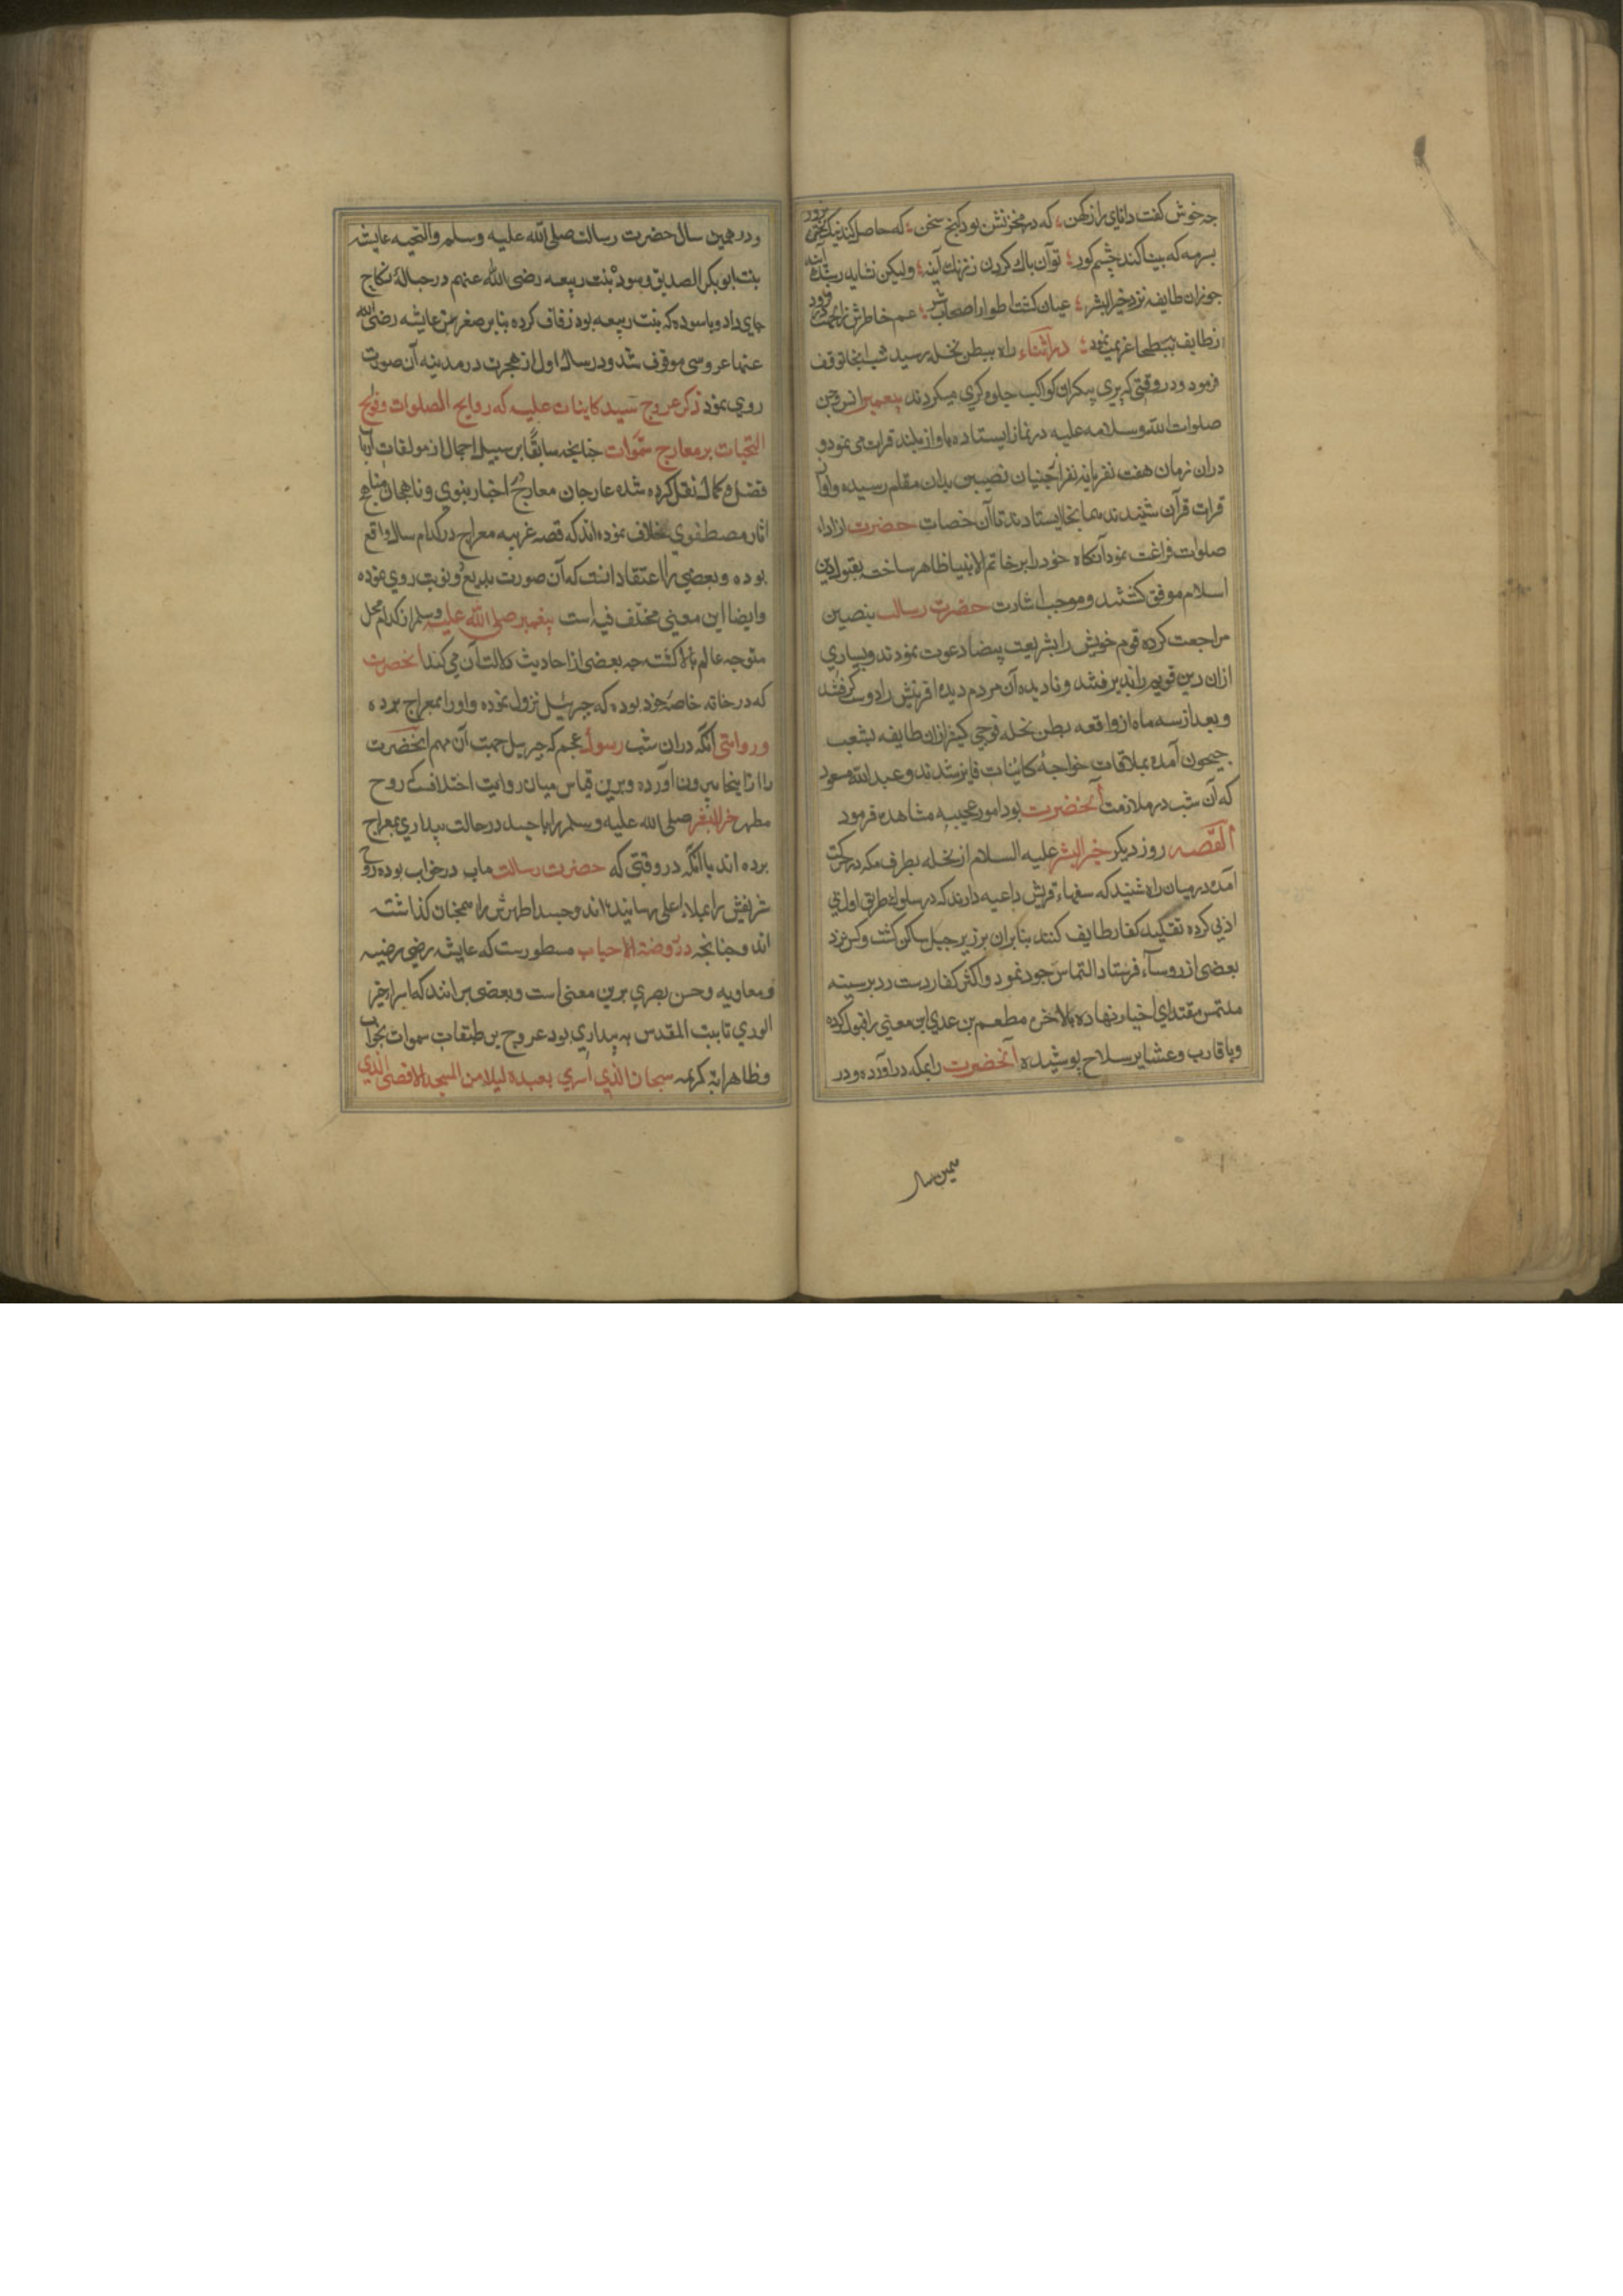 چه خوش گفت دانای راز کهن ؛ که در مخزنش بود گنج سخن ؛ که حاصل کند نیکبختی بزور
بسرمه که بینا کند چشم کور ؛ توان پاک کردن ز زنک آینه ؛ ولیکن نشاید ز سنک آینه
چو زان طایفه نزد خیرالبشر ؛ عیان کشت اطوار اصحاب شر ؛ خاطرش
ز طایف ببطحا عزیمت نمود ؛ در اثناء راه ببطن نخله رسید شب انجا توقف
فرمود و در وقتی که پری پیکران کواکب جلوه کری میکردند پیغمبر انس و جن
صلوات الله و سلامه علیه در نماز ایستاده باواز بلند قرات می نمود و
دران زمان هفت نفر یا نه نفر از جنیان نصیبین بدان مقام رسیده واواز
قرات قرآن شنیدند همانجا ایستادند تا آن حضرت از اداء
صلوات فراغت نمود آنکاه خود را بر خاتم الانبیا ظاهر ساخته بقبول دین
اسلام موفق کشتند و بموجب اشارت حضرت رسالت بنصیبین
مراجعت کرده قوم خویش را بشریعت بیضا دعوت نمودند و بسیاری
ازان دین قویم را پذیرفتند و نادیده آن مردم دیده افرینش را دوست کرفتند
و بعد از سه ماه از واقعه بطن نخله فوجی کثیر ازان طایفه بشعب
جیحون آمده بملاقات خواجهٔ کاینات فایز شدند و عبدالله مسعود
که آن شب در ملازمت آنحضرت بود امور عجیبه مشاهده فرمود
القصه روز دیکر خیرالبشر علیه السلام از نخله بطرف مکه در حرکت
آمده در میان راه شنید که سفهاء قریش داعیه دارند که در سلوک طریق
اذیی کرده تقلید کفار طایف کنند بنابران بر زبر جبل ساکن کشت و کس نزد
بعضی از روساء فرستاد التماس جود نمود و اکثر کفار دست رد بر سینه
ملتمس مقتدای اخیار نهاده بالاخره مطعم بن عدی این معنی را قبول کرده
و با قارب و عشایر سلاح پوشیده آنحضرت را بمکه در آورده و در
همین سال
و در همین سال حضرت رسالت صلی الله علیه وسلم والتحیه عایشه
بنت ابوبکر الصدیق و سوده بنت ربیعه رضی الله عنهم در حبالهٔ نکاح
جای داد و با سوده که بنت ربیعه بود زفاف کرده بنابر صغر سن عایشه رضی الله
عنها عروسی موقوف شد و در سال اول از هجرت در مدینه آن صورت
روی نمود ذکر عروج سید کاینات علیه که روایح الصلوات وفوایح
التحیات بر معارج سموات چنانچه سابقا بر سبیل اجمال از مولفات
فضل و کمال نقل کرده شده عارجان معارج اخبار نبوی و ناهجان مناهج
اثار مصطفوی خلاف نموده اند که قصه غریبه معراج در کدام سال واقع
بوده و بعضی را اعتقاد انست که آن صورت بدیع دو نوبت روی نموده
وایضا این معنی مختلف فیه است پیغمبر صلی الله علیه وسلم از کدام محل
متوجه عالم بالا کشته چه بعضی از احادیث دلالت آن می کند آنحضرت
که در خانه خاصه خود بوده که جبرئیل نزول نموده واو را بمعراج برده
و روایتی آنکه دران شب رسول عجم که جبریل جهت آن مهم آنحضرت
را ازانجا بیرون آورده و برین قیاس میان روایت اختلافست که روح
مطهر صلی الله علیه وسلم را با جسد در حالت بیداری بمعراج
برده اند یا آنکه در وقتی که حضرت رسالت ماب در خواب بوده روح
شریفش را بملاء اعلی رسانیده اند و جسد اطهرش را همچنان کذاشته
اند و چنانچه در روضة الاحباب مسطورست که عایشه رضیه
و معاویه و حسن بصری برین معنی است و بعضی برانند که اسراء خیر
الوری تا بیت المقدس به بیداری بود عروج بر طبقات سموات بخواب
و ظاهر ایة کریمه سبحان الذی اسری بعبده لیلا من المسجد الاقصی الذی